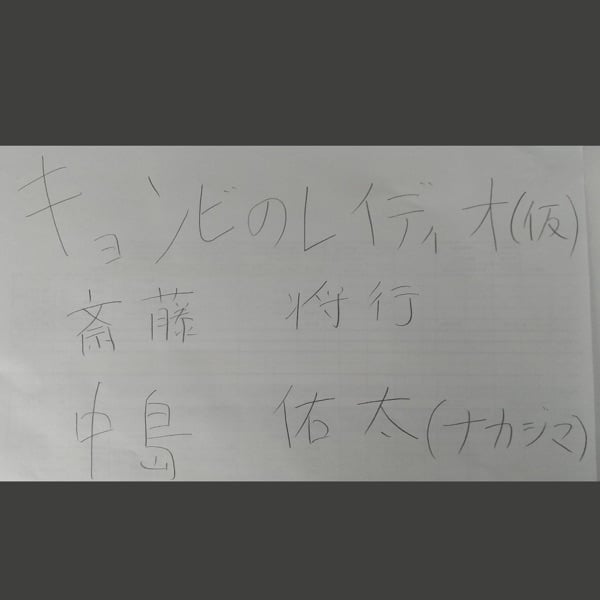 キョンビのレイディオ(仮)
斎藤 将行
中島 佑太(ナカジマ)